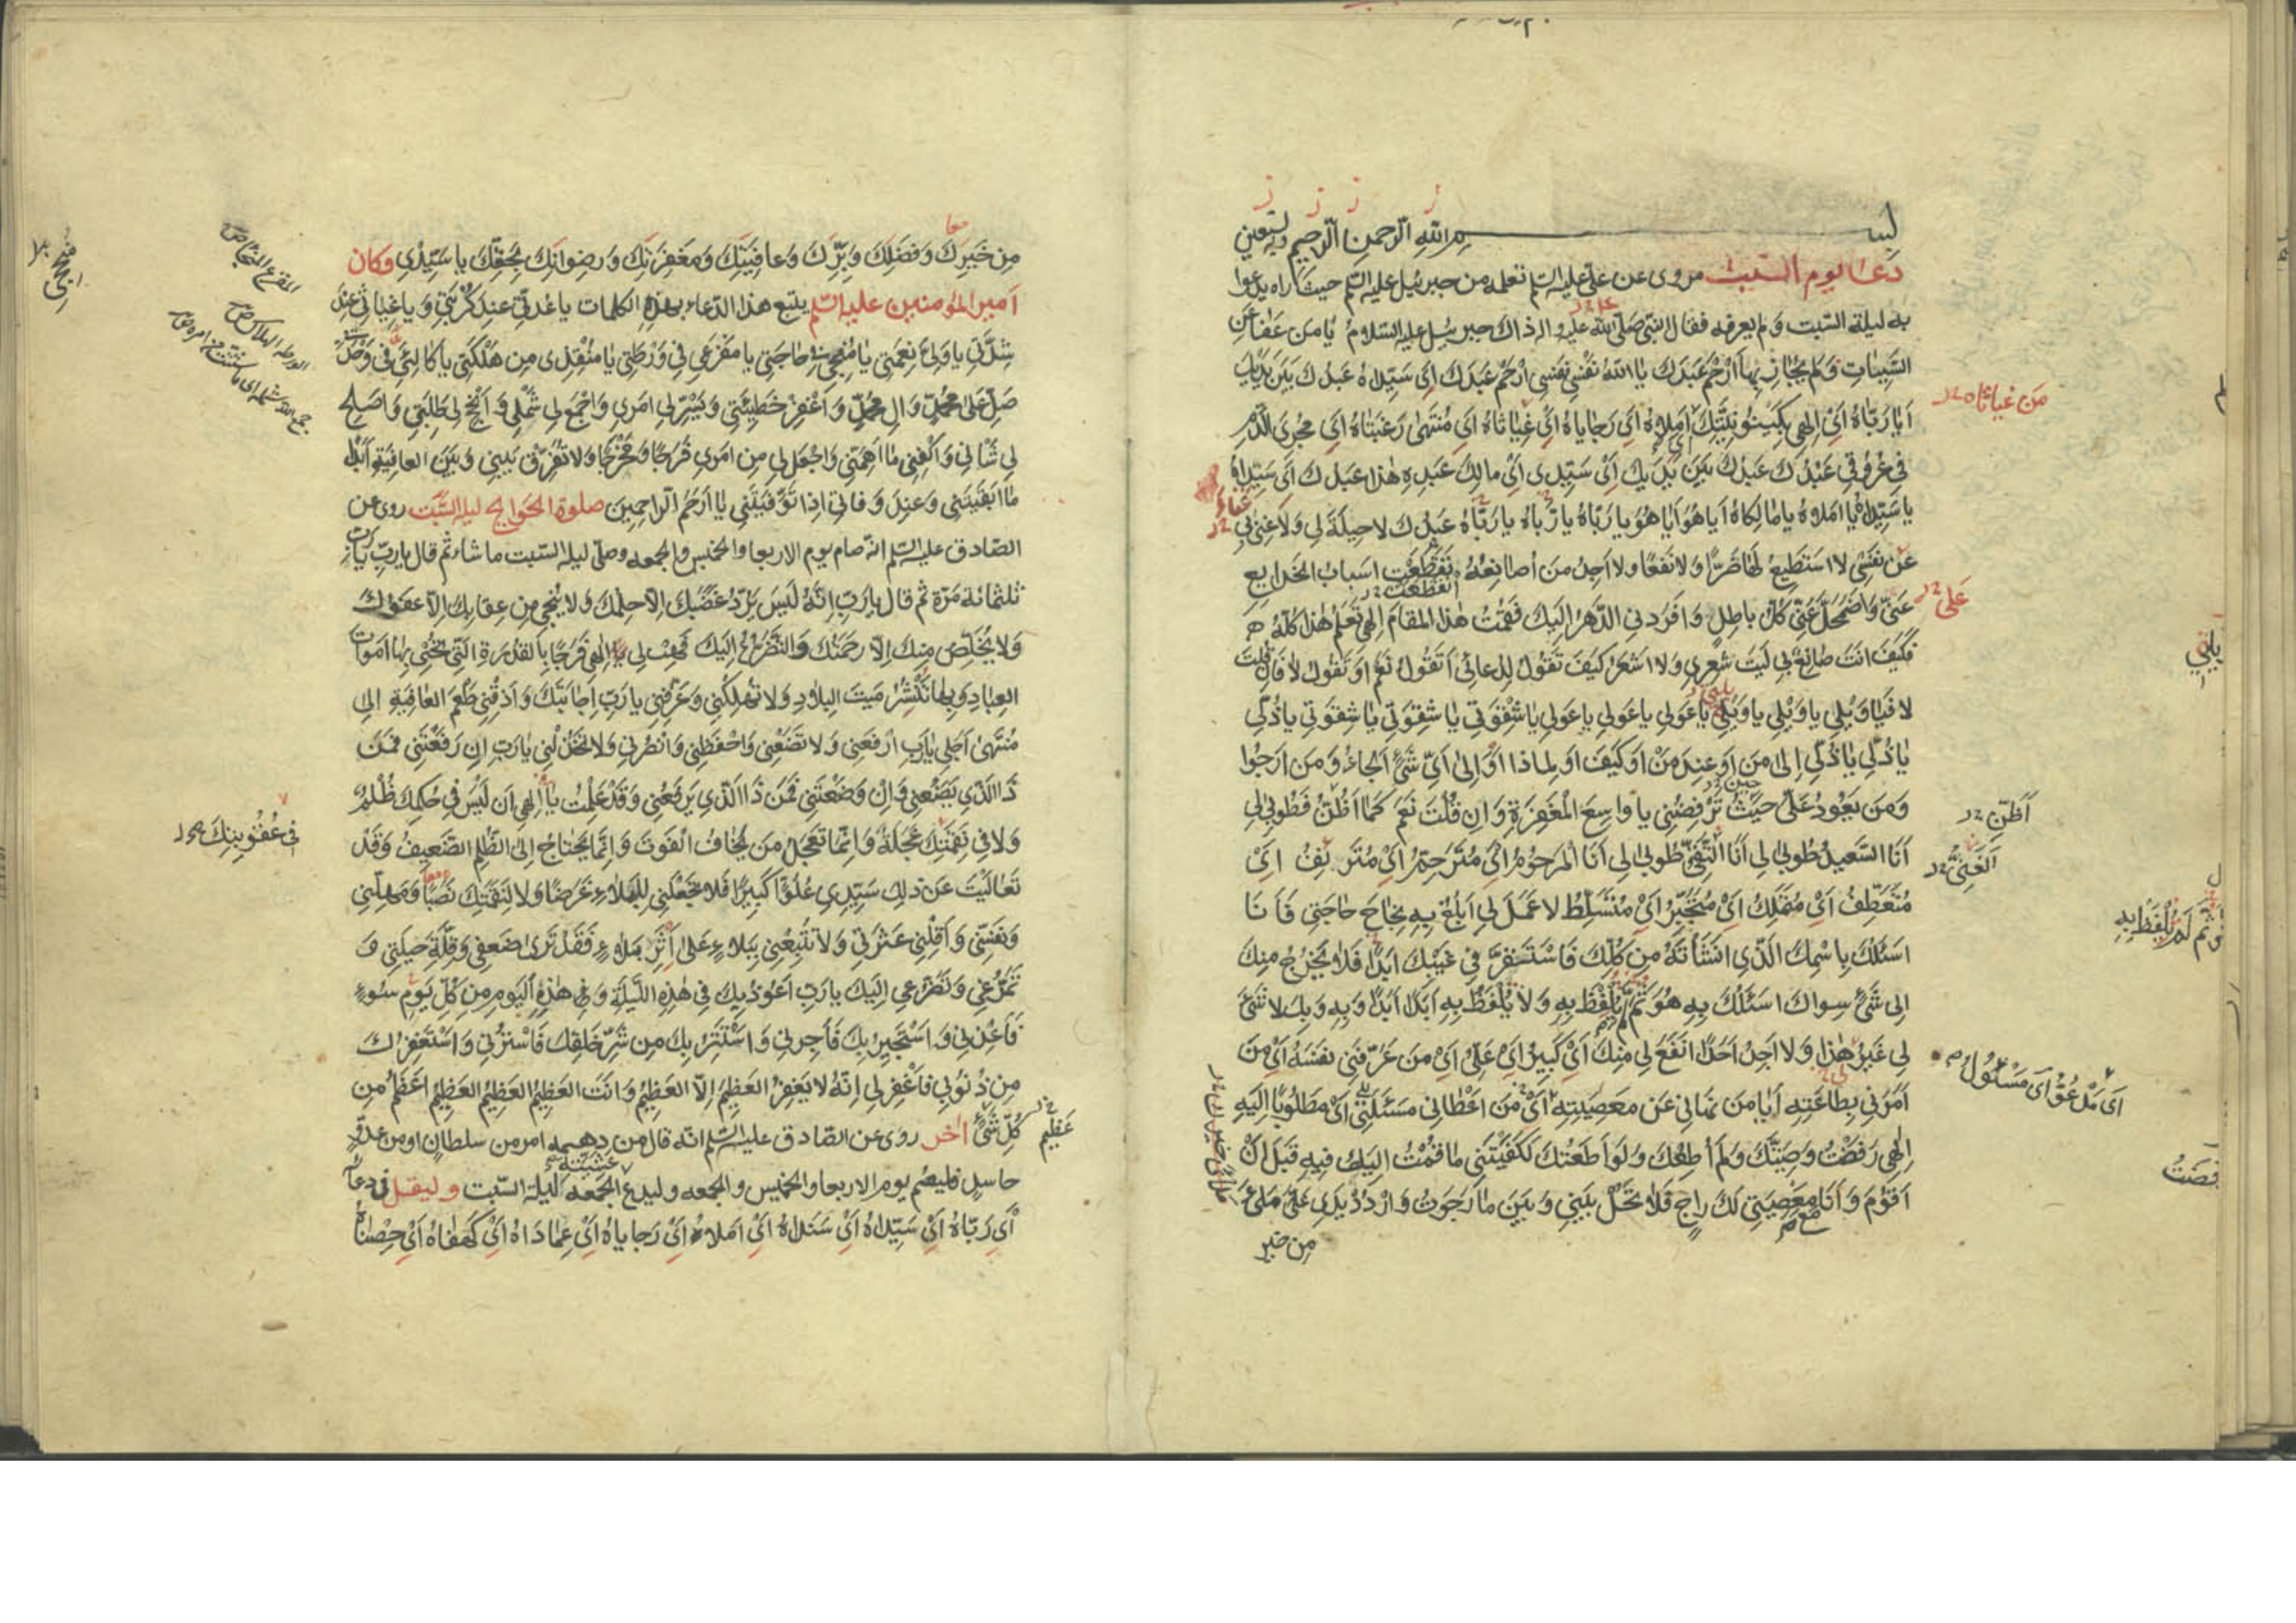 بسم الله الرحمن الرحيم وبه نستعين
دعا يوم السبت مروى عن على عليه السلم تعلمه من جبرئيل عليه السلم حيث راه يدعوا
به ليلة السبت ولم يعرفه فقال النبى صلى الله عليه واله ذاك جبرئيل عليه السلام يا من عفا عن
السَّيِّئاتِ وَلَم يُجازِ بِها اِرْحَم عَبدَكَ يا اَللهُ نَفْسى نَفسى اِرْحَم عَبدَكَ اَى سَيِّداه عَبدُكَ بَينَ يَدَيكَ
اَيا رَبّاهُ اَىْ اِلهى بِكَينُونِيَّتِكَ اَى اَمَلاهُ اَى رَجاياهُ اَى غِياثاهُ اَى مُنتَهى رَغبَتاهُ اَى مُجرِىَ الدَّمِ
فى عُرُوقى عَبْدُكَ عَبدُكَ بَينَ يَدَيكَ اَىْ سَيِّدى اَىْ مالِكَ عَبدِهِ هذا عَبدُكَ اَى سَيِّداهُ
يا سَيِّداهُ يا اَمَلاهُ يا مالِكاهُ اَيا هُوَ اَيا هُوَ يا رَبّاهُ يا رَبّاهُ يا رَبّاهُ عَبدُكَ لا حيلَةَ لى وَلا غِنى بى
عَن نَفْسى لا اَستَطيعُ لَها ضَرًّا وَلا نَفعًا وَلا اَجِدُ مَن اُصانِعُهُ تَقَطَّعَت اَسبابُ الخَدايِعِ
عَنّى وَاضْمَحَلَّ عَنّى كُلُّ باطِلٍ وَاَفرَدَنى الدَّهرُ اِلَيكَ فَقُمتُ هذَا المَقامَ اِلهى تَعلَمُ هذا كُلَّهُ
فَكَيفَ اَنتَ صانِعٌ بى لَيتَ شِعرى وَلا اَشعُرُ كَيفَ تَقُولُ لِدُعائى اَتَقُولُ نَعَم اَو تَقُولُ لا فَاِن قُلتَ
لا فَيا وَيْلى يا وَيْلى يا وَيْلى يا عَولى يا عَولى يا عَولى يا شِقْوَتى يا شِقْوَتى يا شِقْوَتى يا ذُلّى
يا ذُلّى يا ذُلّى اِلى مَن اَو عِندَ مَنْ اَو كَيفَ اَو لِماذا اَو اِلى اَىِّ شَىءٍ اَلجَأُ وَمَن اَرجُوا
وَمَن يَعُودُ عَلَىَّ حَيثُ تَرفِضُنى يا واسِعَ المَغفِرَةِ وَاِن قُلتَ نَعَم كَما اَظُنُّ فَطُوبى لى
اَنَا السَّعيدُ طُوبى لى اَنَا التَّقِىُّ طُوبى لى اَنَا المَرحُومُ اَى مُتَرَحِّمُ اَىْ مُتَرَئِفُ اَىْ
مُتَعَطِّفُ اَىْ مُتَمَلِّكُ اَىْ مُتَجَبِّرُ اَىْ مُتَسَلِّطُ لا عَمَلَ لى اَبلُغُ بِهِ نَجاحَ حاجَتى فَاَنَا
اَسئَلُكَ بِاسمِكَ الَّذى اَنشَأتَهُ مِن كُلِّكَ فَاستَقَرَّ فى غَيبِكَ اَبَدًا فَلا يَخرُجُ مِنكَ
اِلى شَىءٍ سِواكَ اَسئَلُكَ بِهِ هُوَ ثُمَّ لَم يُلفَظ بِهِ وَلا يُلفَظُ بِهِ اَبَدًا اَبَدًا وَبِهِ وَبِكَ لا شَىءَ
لى غَيرُ هذا وَلا اَجِدُ اَحَدًا اَنفَعَ لى مِنكَ اَىْ كَبيرُ اَىْ عَلِىُّ اَىْ مَن عَرَّفَنى نَفسَهُ اَىْ مَن
اَمَرَنى بِطاعَتِهِ اَيا مَن نَهانى عَن مَعصِيَتِهِ اَىْ مَن اَعطانى مَسئَلَتى اَىْ مَطلُوبًا اِلَيهِ
اِلهى رَفَضتُ وَصِيَّتَكَ وَلَم اُطِعكَ وَلَو اَطَعتُكَ لَكَفَيتَنى ما قُمتُ اِلَيكَ فيهِ قَبلَ اَنْ
اَقُومَ وَاَنَا مَعَ مَعصِيَتى لَكَ راجٍ فَلا تَحُل بَينى وَبَينَ ما رَجَوتُ وَاردُد يَدى عَلَىَّ مَلئى
من خير
من غياثاه
على
اظن
الغنى
اى مدعو اى مسئول
مِن خَيرِكَ وَفَضلِكَ وَبِرِّكَ وَعافِيَتِكَ وَمَغفِرَتِكَ وَرِضوانِكَ بِحَقِّكَ يا سَيِّدى وكان
امير المؤمنين عليه السلم يتبع هذا الدعاء بهذه الكلمات يا عُدَّتى عِندَ كُربَتى وَيا غِياثى عِندَ
شِدَّتى يا وَلِىَّ نِعمَتى يا مُنجِحى فى حاجَتى يا مَفزَعى فى وَرطَتى يا مُنقِذى مِن هَلَكَتى يا كالِئى فى وَحدَتى
صَلِّ عَلى مُحَمَّدٍ وَالِ مُحَمَّدٍ وَاغفِر خَطيئَتى وَيَسِّر لى اَمرى وَاجمَع لى شَملى وَاَنجِح لى طَلِبَتى وَاَصلِح
لى شَأنى وَاكفِنى ما اَهَمَّنى وَاجعَل لى مِن اَمرى فَرَجًا وَمَخرَجًا وَلا تُفَرِّق بَينى وَبَينَ العافِيَةِ اَبَدًا
ما اَبقَيتَنى وَعِندَ وَفاتى اِذا تَوَفَّيتَنى يا اَرحَمَ الرّاحِمينَ صلوة الحوايج ليلة السبت روى عن
الصادق عليه السلم انه صام يوم الاربعا والخميس والجمعه وصلى ليلة السبت ما شاء ثم قال يا رب يا رب
ثلثمائة مرة ثم قال يا رَبِّ اِنَّهُ لَيسَ يَرُدُّ غَضَبَكَ اِلّا حِلمُكَ وَلا يُنجى مِن عِقابِكَ اِلّا عَفوُكَ
وَلا يُخَلِّصُ مِنكَ اِلّا رَحمَتُكَ وَالتَّضَرُّعُ اِلَيكَ فَهَب لى يا اِلهى فَرَجًا بِالقُدرَةِ الَّتى تُحيى بِها اَموات
العِبادِ وَبِها تَنشُرُ مَيتَ البِلادِ وَلا تُهلِكنى وَعَرِّفنى يا رَبِّ اِجابَتَكَ وَاَذِقنى طَعمَ العافِيَةِ اِلى
مُنتَهى اَجَلى يا رَبِّ ارفَعنى وَلا تَضَعنى وَاحفَظنى وَانصُرنى وَلا تَخذُلنى يا رَبِّ اِن رَفَعتَنى فَمَن
ذَا الَّذى يَضَعُنى وَاِن وَضَعتَنى فَمَن ذَا الَّذى يَرفَعُنى وَقَد عَلِمتُ يا اِلهى اَن لَيسَ فى حُكمِكَ ظُلمٌ
وَلا فى نَقِمَتِكَ عَجَلَةٌ وَاِنَّما تَعجَلُ مَن يَخافُ الفَوتَ وَاِنَّما يَحتاجُ اِلَى الظُّلمِ الضَّعيفُ وَقَد
تَعالَيتَ عَن ذلِكَ سَيِّدى عُلُوًّا كَبيرًا فَلا تَجعَلنى لِلبَلاءِ غَرَضًا وَلا لِنَقِمَتِكَ نَصَبًا وَمَهِّلنى
وَنَفِّسنى وَاَقِلنى عَثرَتى وَلا تُتبِعنى بِبَلاءٍ عَلى اَثَرِ بَلاءٍ فَقَد تَرى ضَعفى وَقِلَّةَ حيلَتى وَ
تَمَرُّغى وَتَضَرُّعى اِلَيكَ يا رَبِّ اَعُوذُ بِكَ فى هذِهِ اللَّيلَةِ وَفى هذِهِ اليَومِ مِن كُلِّ يَومِ سُوءٍ
فَاَعِذنى وَاَستَجيرُ بِكَ فَاَجِرنى وَاَستَتِرُ بِكَ مِن شَرِّ خَلقِكَ فَاستُرنى وَاَستَغفِرُكَ
مِن ذُنُوبى فَاغفِر لى اِنَّهُ لا يَغفِرُ العَظيمَ اِلَّا العَظيمُ وَاَنتَ العَظيمُ العَظيمُ العَظيمُ اَعظَمُ مِن
كُلِّ شَىءٍ اخر روى عن الصادق عليه السلم انه قال من دهمه امر من سلطان او من عدو
حاسد فليصم يوم الاربعا والخميس والجمعه وليدع عشية الجمعه ليلة السبت وليقل فى دعائه
اَى رَبّاهُ اَىْ سَيِّداهُ اَىْ سَنَداهُ اَىْ اَمَلاهُ اَىْ رَجاياهُ اَىْ عِمادَاهُ اَىْ كَهفاهُ اَىْ حِصناهُ
المفزع الملجأ
عظيم
فى عقوبتك